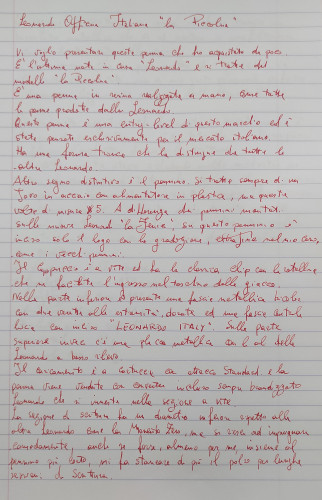 Leonardo Officina Italiana "la Piccolina"
Vi voglio presentare questa penna che ho acquistato da poco.
E' l'ultima nata in casa "Leonardo" e si tratta del
modello "la Piccolina".
E' una penna in resina realizzata a mano, come tutte
le penne prodotte dalla Leonardo.
Questa penna è una entry-level di questo marchio ed è
stata pensata esclusivamente per il mercato italiano.
Ha una forma tronca che la distingue da tutte le
altre Leonardo.
Altro segno distintivo è il pennino. Si tratta sempre di un
Jovo in acciaio con alimentatore in plastica, ma questa
volta di misura #5. A differenza dei pennini montati
sulle nuove Leonard "la Fenice", su questo pennino è
inciso solo il logo con la gradazione, nel mio caso,
come i vecchi pennini.
Il cappuccio è a vite ed ha la classica clip con la rotellina
che ne facilita l'ingresso nel taschino della giacca.
Nella parte inferiore è presente una fascia metallica
con due anelli alle estremità, dorate ed una fascia centrale
liscia con inciso "LEONARDO ITALY". Sulla parte
superiore invece c'è una placca metallica col logo della
Leonardo a basso rilievo.
Il caricamento è a cartucce con attacco standard, e la
penna viene venduta con converter incluso sempre brandizzato
Leonardo che si innesta nella sezione a vite.
La sezione di scrittura ha un diametro inferiore rispetto alle
altre Leonardo come la Momento Zero, ma si riesce ad impugnare
comodamente, anche se forse, almeno per me, insieme al
pennino più corto, mi fa stancare di più il polso per lunghe
sessioni di scrittura.